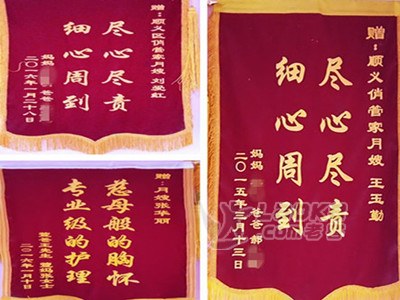 赠：顺义区俏管家月嫂刘爱红
尽心尽责
细心周到
妈妈 爸爸
二〇一六年一月二十八日
赠：月嫂张华丽
慈母般的胸怀
专业级的护理
二〇一六年一月
赠：顺义俏管家月嫂 王玉勤
尽心尽责
细心周到
妈妈 爸爸 郝
二〇一五年三月十三日